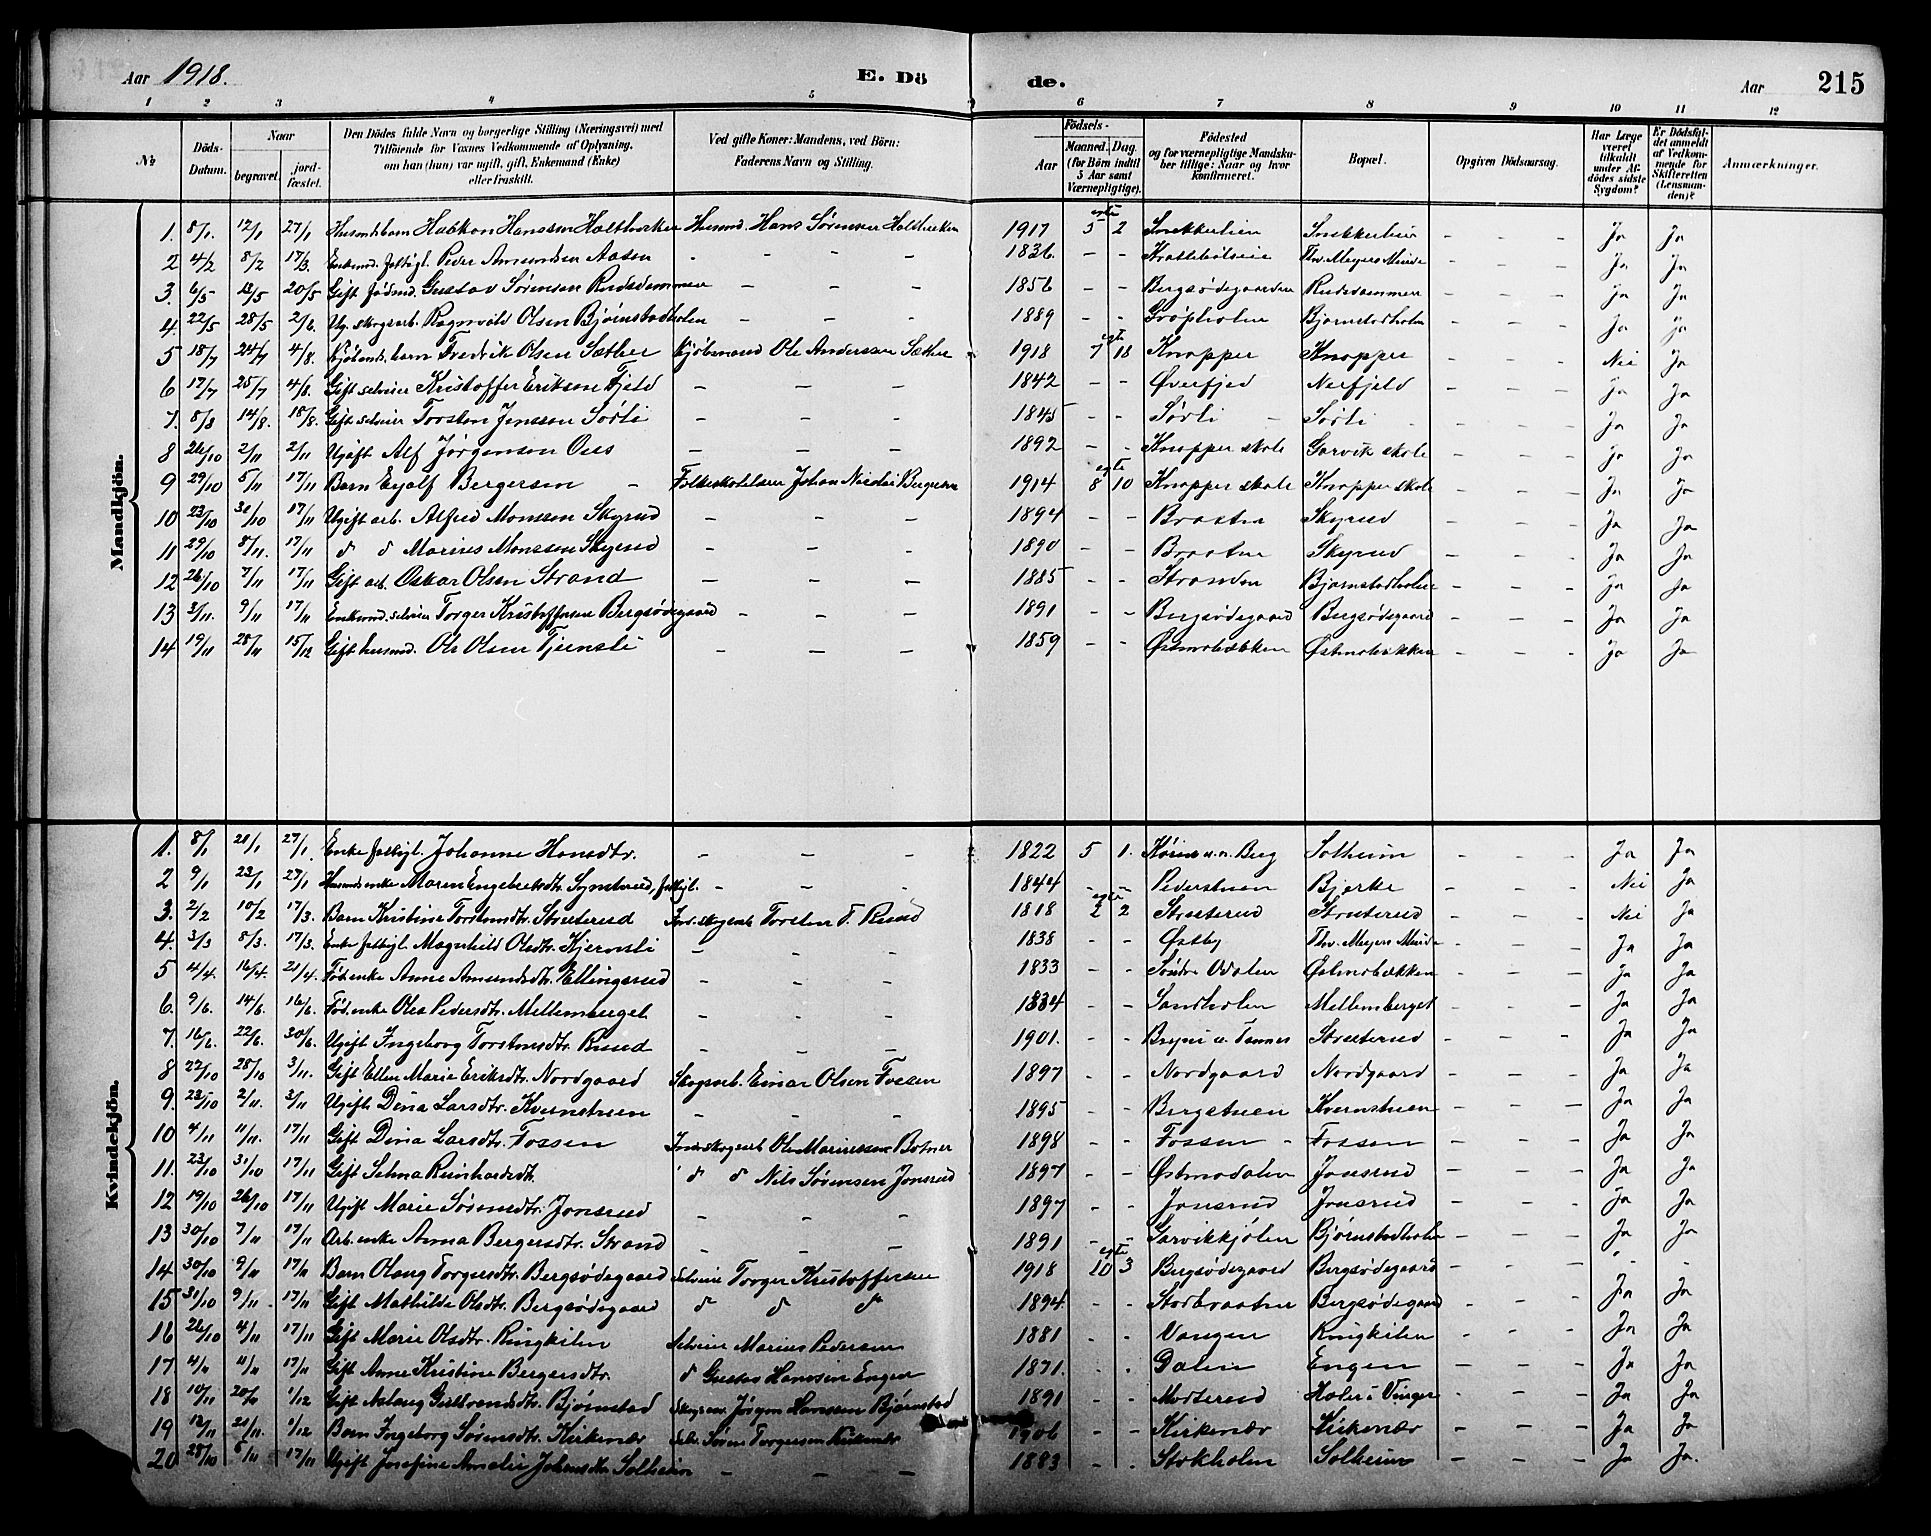 Aar 1918. E. Dö de. Aar 215
1 2 3 4 5 6 7 8 9 10 11 12
No
Döds-Datum.
Naar
begravet. jordfæstet.
Den Dödes fulde Navn og borgerlige Stilling (Næringsvei) med Tilföiende for Voxnes Vedkommende af Oplysning, om han (hun) var ugift, gift, Enkemand (Enke) eller fraskilt.
Ved gifte Koner: Mandens, ved Börn: Faderens Navn og Stilling.
Födsels-
Aar Maaned. Dag. (for Börn indtil 5 Aar samt Værnepligtige).
Födested og for værnepligtige Mandskaber tillige: Naar og hvor konfirmeret.
Bopæl.
Opgiven Dödsaarsag.
Har Læge været tilkaldt under Afdödes sidste Sygdom?
Er Dödsfaldet anmeldt af Vedkommende for Skifteretten (Lensmanden)?
Anmærkninger.
Mandkjön.
1. 8/1. 12/1 27/1 Husmdsbarn Haakon Hanssen Holtbrekken Husmd. Hans Sørensen Holtbrekken 1917 egte 5 2 Snekkerlien Snekkerlien - - - Ja Ja
2 4/2 8/2 17/3. Enkemd. fattigl. Peder Amundsen Aasen - - - 1836. - - Thv. Meyers Minde - - - Ja Ja
3. 6/5 13/5 20/5 Gift fødmd. Gustav Sørensen Rudsdammen - - - 1856 - - Bergsødegaarden Rudsdammen - - - Ja Ja
4. 22/5 28/5 2/6. Ug. skogsarb. Ragnvald Olsen Bjørnstadholen - - - 1889 - - Gropholen Bjørnstadholen - - - Ja Ja
5 18/7 24/7 4/8. Kjøbmds. barn Fredrik Olsen Sæther Kjøbmand Ole Anderssen Sæther 1918 egte 7 18 Knapper Knapper - - - Nei Ja
6 17/7 25/7 4/8. Gift selveier Kristoffer Eriksen Fjeld - - - 1842 - - Øverfjed Nerfjeld - - - Ja Ja
7. 8/8 14/8. 18/8. Gift selveier Torsten Jenssen Sørli - - - 1845 - - Sørli - Sørli - - - Ja Ja
8 26/10 2/11 2/11 Ugift Alf Jørgensen Oies - - - 1892 - - Knapper skole Garvik skole - - - Ja Ja
9 29/10 5/11 17/11 Barn Eyolf Bergersen - Folkeskolelærer Johan Nicolai Bergersen 1914 egte 8 10 Knapper skole Knapper skole - - - Ja Ja
10 23/10 31/10 17/11 Ugift arb. Alfred Monssen Skyrud - - - 1894 - - Braaten Skyrud - - - Ja Ja
11 29/10 8/11. 17/11 d d Marius Monssen Skyrud - - - 1890 - - Braaten Skyrud - - - Ja Ja
12 26/10 7/11 17/11 Gift arb. Oskar Olsen Strand - - - 1885 - - Stranden Bjørnstadholen - - - Ja Ja
13 3/11. 9/11 17/11 Enkemd. selveier Torger Kristoffersen Bergsødegaard - - - 1891 - - Bergsødegaard Bergsødegaard - - - Ja Ja
14 19/11 28/11 15/12 Gift husmd. Ole Olsen Tjernsli - - - 1859 - - Østmobækken Østmobækken - - - Ja Ja
Kvindekjön.
1. 8/1 21/1 27/1. Enke fattigl. Johanne Hansdtr. - - - 1822 5 1. Solheim - - - Ja Ja
2 9/1 23/1 27/1 Husmdsenke Maren Engebretsdtr. fattigl. - - - 1844 - - Pederstuen Bjerke - - - Nei Ja
3. 2/2 10/2 17/3. Barn Kristine Torstensdtr. Stræterud Torsten T. Ruud 1818 egte 2 2 Stræterud Stræterud - - - Nei Ja
4. 3/3 8/3. 17/3. Enke fattigl. Magnhild Olsdtr. Kjernsli - - - 1838 - - Østby Thv. Meyers Minde - - - Ja Ja
5 4/4. 16/4. 21/4. Fød. enke Anne Amundsdtr. Ellingsrud - - - 1833 - - Søndre Odalen Østmobækken - - - Ja Ja
6. 9/6. 14/6 16/6 Fød. enke Olea Pedersdtr. Mellemberget - - - 1834 - - Sandholen Mellemberget - - - Ja Ja
7. 16/6. 22/6. 30/6. Ugift Ingeborg Torstensdtr. Ruud - - - 1901. - - Stræterud - - - Ja Ja
8 22/10 28/10 3/11. Gift Ellen Marie Eriksdtr. Nordgaard Skogsarb. Einar Olsen Fossen 1897 - - Nordgaard Nordgaard - - - Ja Ja
9. 23/10 2/11. 3/11 Ugift Dina Larsdtr. Kvernstuen - - - 1895 - - Bergstuen Kvernstuen - - - Ja Ja
10 4/11 11/11. 17/11 Gift Dina Larsdtr. Fossen Ole Mariussen Botner 1898 - - Fossen - Fossen - - - Ja Ja
11. 23/10 31/10 17/11 Gift Selma Reinhardsdtr. d d Nils Sørensen Jonsrud 1897 - - Østmodalen Jonsrud - - - Ja Ja
12 19/10 26/10 17/11 Ugift Marie Sørensdtr. Jonsrud - - - 1897 - - Jonsrud Jonsrud - - - Ja Ja
13 30/10 7/11 17/11 Arb. enke Anna Bergersdtr. Strand - - - 1891 - - Garvikkjølen Bjørnstadholen - - - Ja Ja
14 30/10 9/11 17/11 Barn Olaug Torgersdtr. Bergsødegaard Selveier Torger Kristoffersen 1918 egte 10 3 Bergsødegaard Bergsødegaard - - - - -
15 31/10 9/11. 17/11 Gift Mathilde Olsdtr. Bergsødegaard d d d 1894. - - Storbraaten Bergsødegaard - - - Ja Ja
16 26/10 4/11 17/11 Gift Marie Olsdtr. Ringkilen Selveier Marius Pedersen 1881 - - Vangen Ringkilen - - - Ja Ja
17. 4/11 11/11 17/11 Gift Anne Kristine Bergersdtr. d Gustav Hanssen Engen 1871. - - Dalen Engen - - - Ja Ja
18 10/11 20/11 1/12 Gift Aslaug Gulbrandsdtr. Bjørnstad Jørgen Hanssen Bjørnstad 1891 - - Morterud Holer i Vinger - - - Ja Ja
19 12/11 21/11. 1/12 Barn Ingeborg Sørensdtr. Kirkenær Selv. Søren Torgersen Kirkenær 1906 - - Kirkenær Kirkenær - - - Ja Ja
20 28/10 6/11 17/11 Ugift Josefine Amalie Johansdtr Solheim - - - 1883 - - Stokholm Solheim - - - Ja Ja.